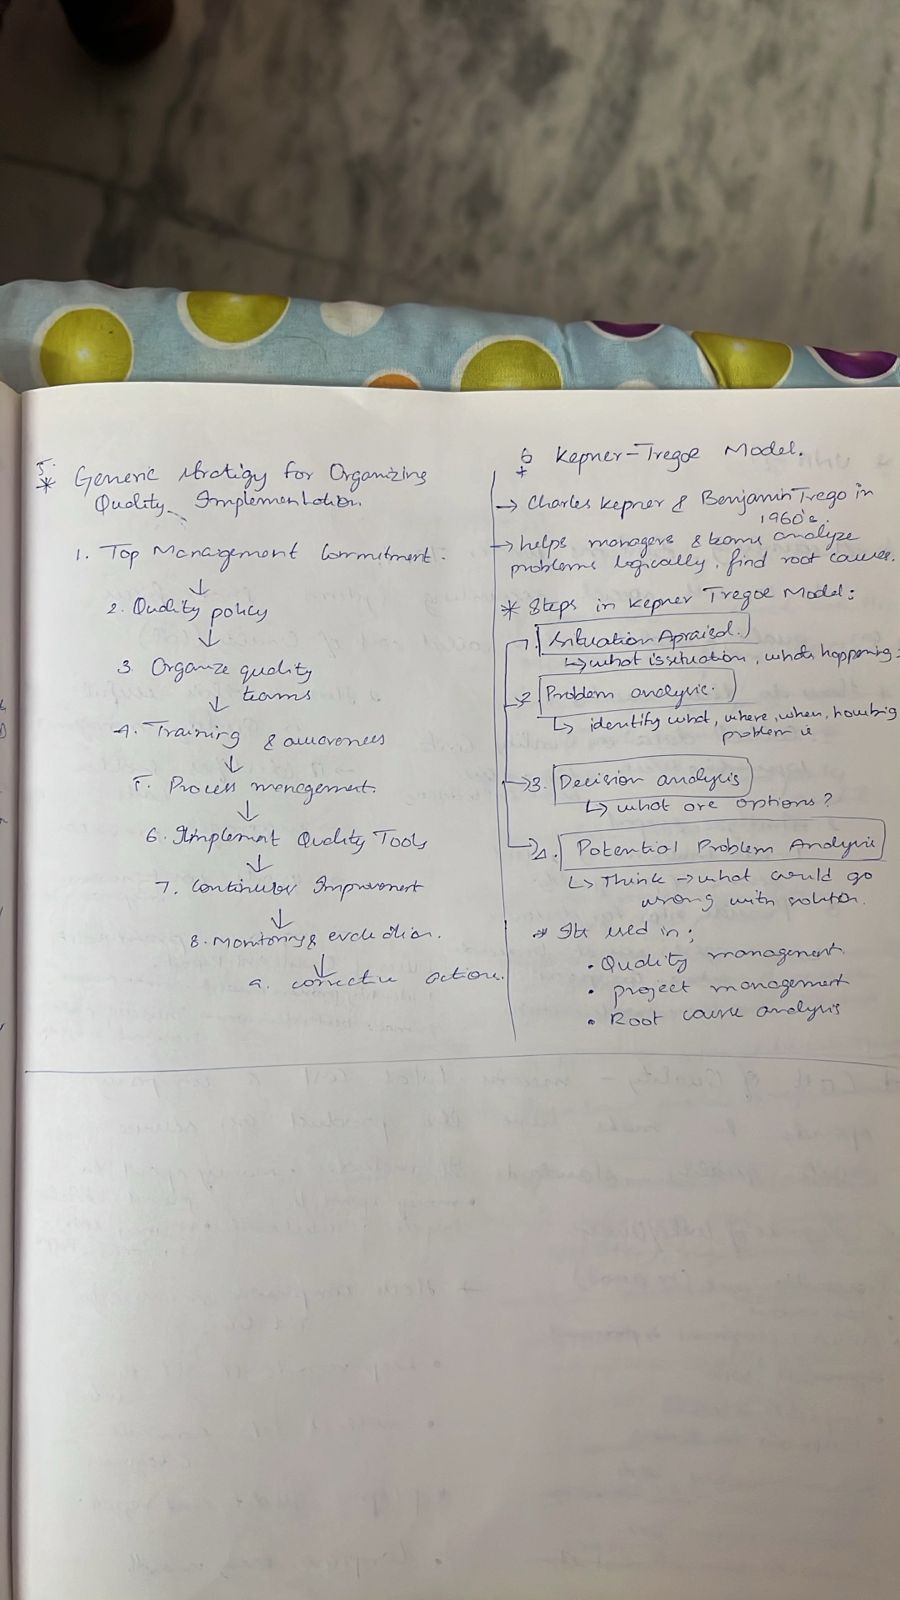 5.
* Generic strategy for Organizing
Quality Implementation
1. Top Management Commitment.
↓
2. Quality policy
↓
3. Organize quality
teams
↓
4. Training & awareness
↓
5. Process management.
↓
6. Implement Quality Tools
↓
7. Continuous Improvement
↓
8. Monitoring &
↓
9. corrective actions.
6
* Kepner-Tregoe Model.
→ Charles Kepner & Benjamin Trego in
1960's.
→ helps managers & teams analyze
problems logically, find root causes.
* Steps in Kepner Tregoe Model:
1. Situation Apraisal.
↳ what is situation, what happening
→ 2. Problem analysis.
↳ identify what, where, when, how big
problem is
→ 3. Decision analysis
↳ what are options?
→ 4. Potential Problem Analysis
↳ Think → what could go
wrong with solution.
* It used in;
• Quality management
• project management
• Root cause analysis